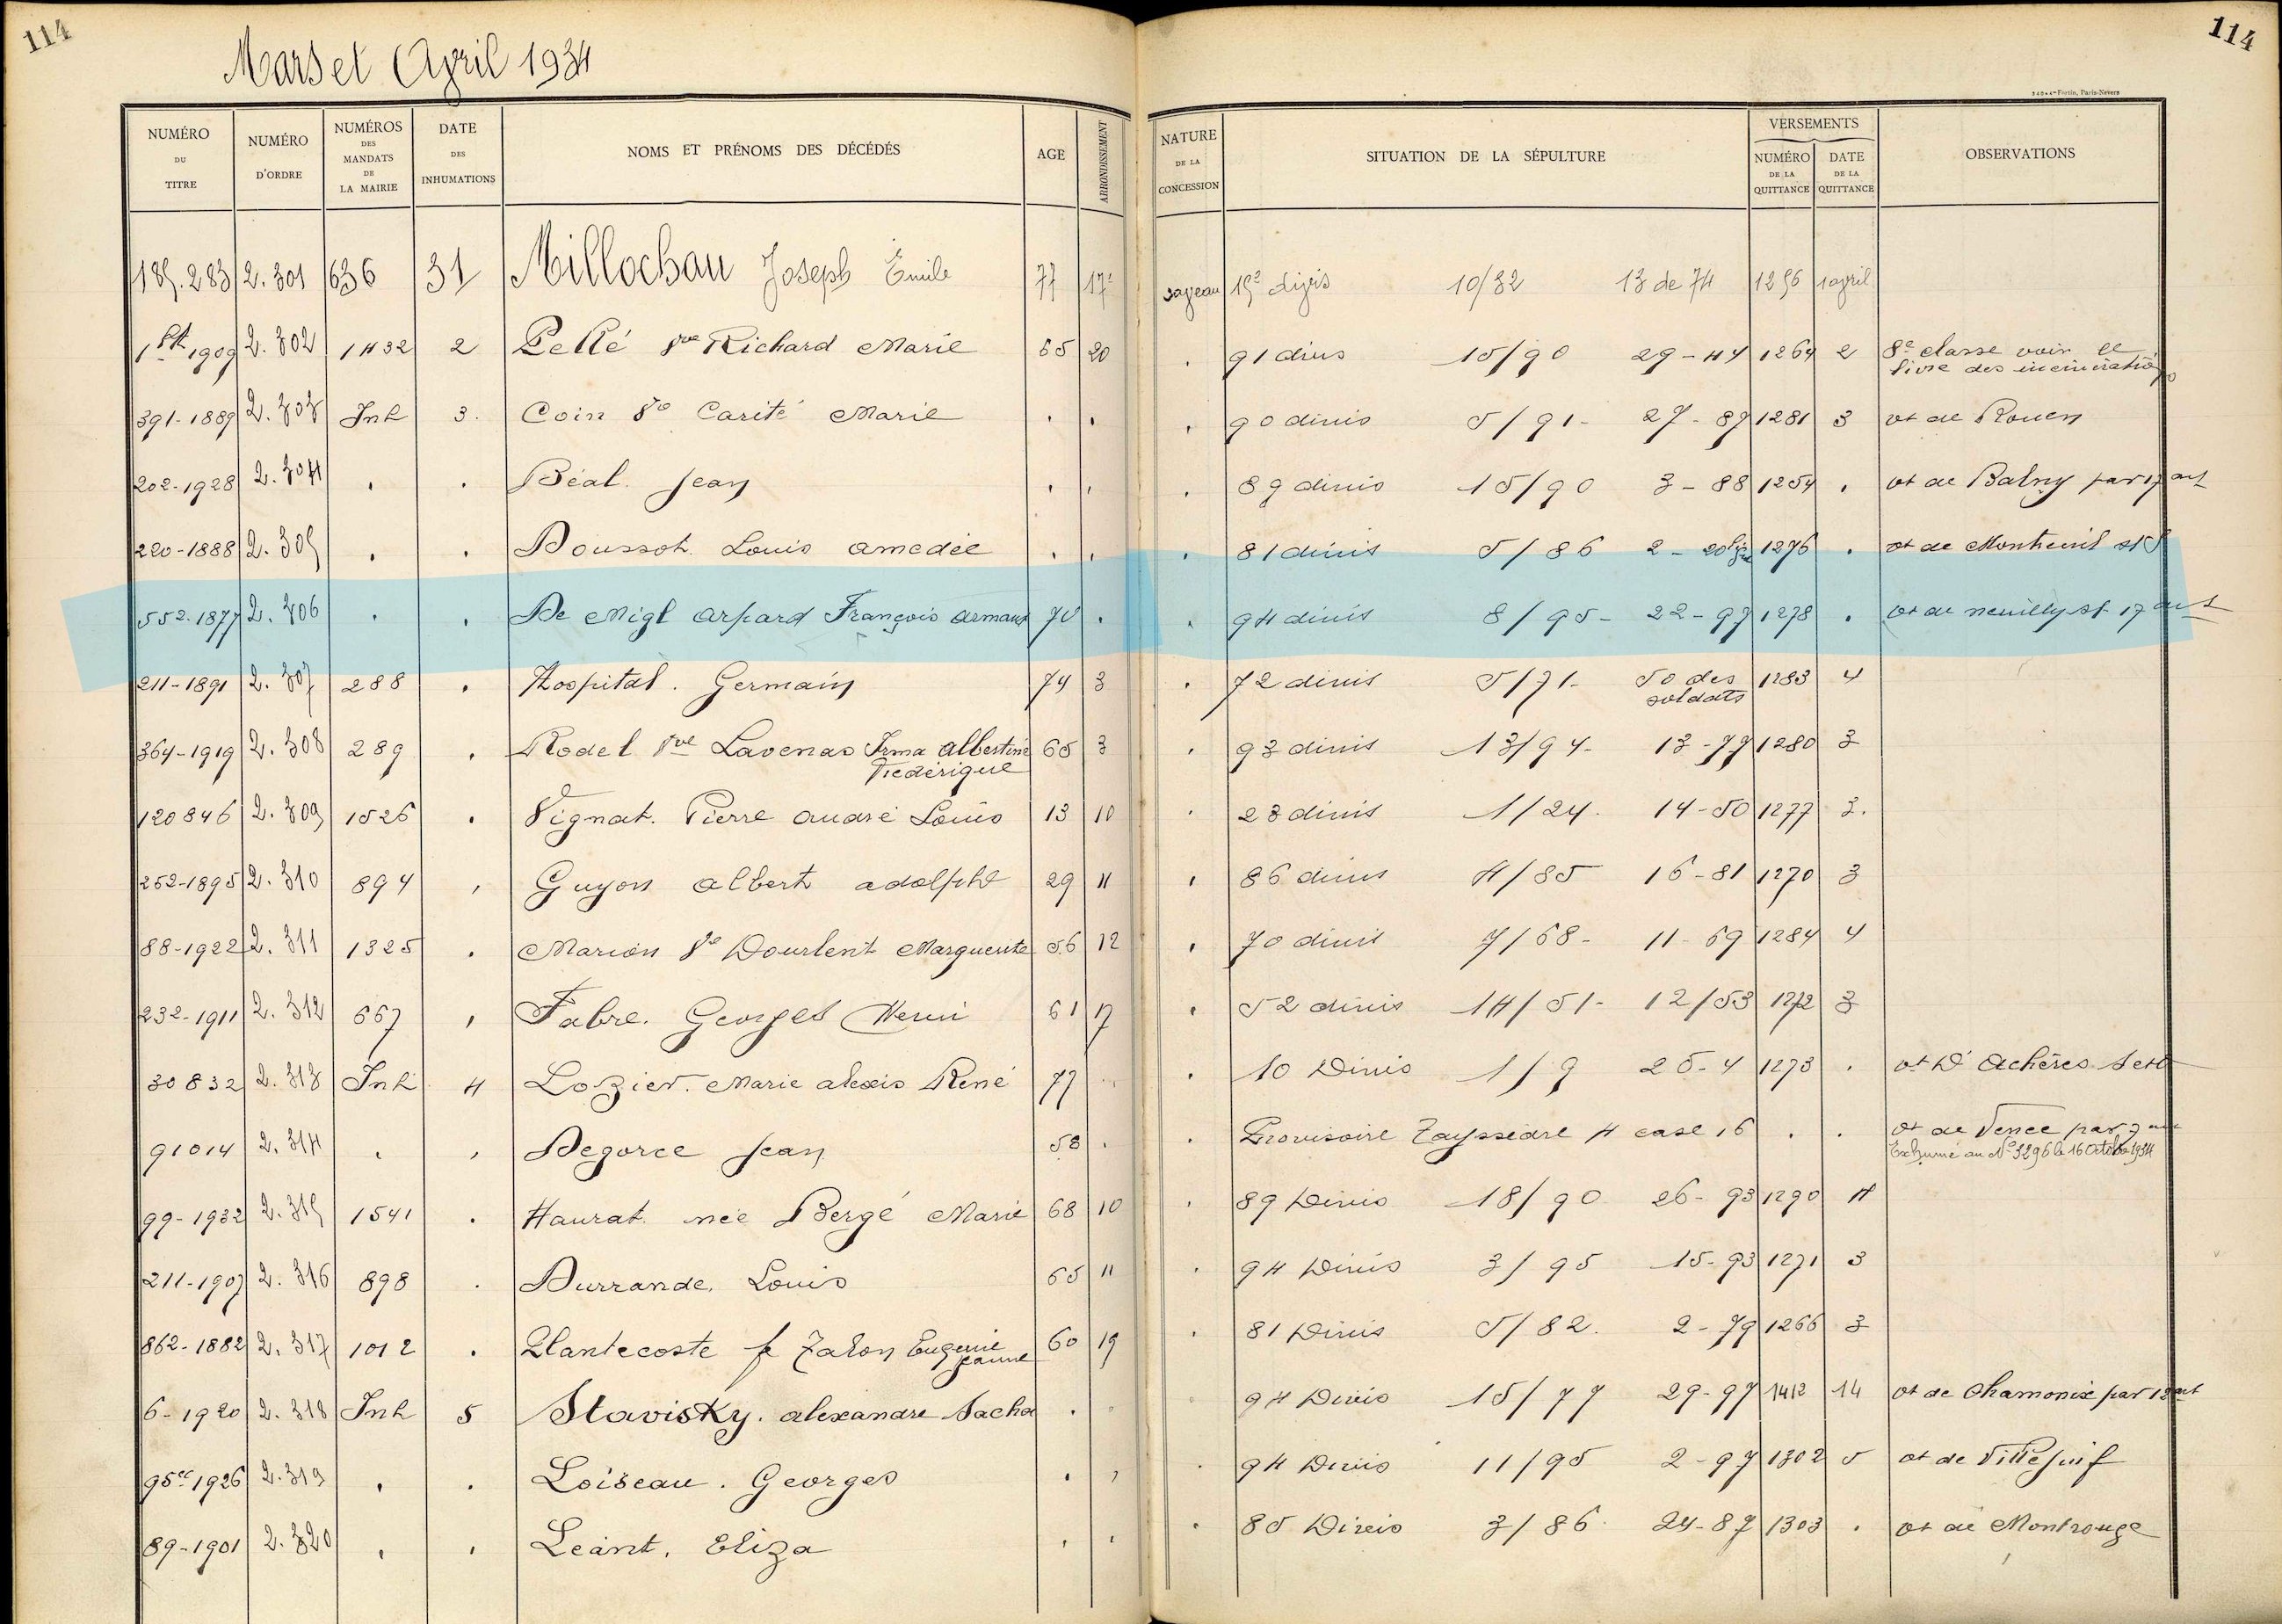 114
114
Mars et Avril 1934
340 • 4 - Fortin, Paris-Nevers
NUMÉRO DU TITRE
NUMÉRO D'ORDRE
NUMÉROS DES MANDATS DE LA MAIRIE
DATE DES INHUMATIONS
NOMS ET PRÉNOMS DES DÉCÉDÉS
AGE
ARRONDISSEMENT
NATURE DE LA CONCESSION
SITUATION DE LA SÉPULTURE
VERSEMENTS
NUMÉRO DE LA QUITTANCE
DATE DE LA QUITTANCE
OBSERVATIONS
185.283 2.301 636 31 Millochau Joseph Emile 77 17e 15e divis 10/32 13 de 74 1256 1 avril
1909 2.302 1432 2 Pelté Vve Richard Marie 65 20 . 91 divis 15/90 29-44 1264 2 8e classe voir le
livre des incinérations
391-1889 2.303 Inh 3. Coin Ve Carité Marie . . . 90 divis 5/91- 27-87 1281 3 vt de Rouen
202-1928 2.304 . . Béal. Jean . . . 89 divis 15/90 3-88 1254 . vt de Balny par 17 art
220-1888 2.305 . . Doussot Louis amedée . . . 81 divis 5/86 2- 1276 . vt de Montreuil s/S
552-1877 2.306 . . De Migl arpard François armand 70 . . 94 divis 8/95- 22-97 1278 . vt de neuilly s/- 17 art
211-1891 2.307 288 . Hospital. Germain 74 3 . 72 divis 5/71- 50 des 1283 4
soldats
364-1919 2.308 289 . Rodel Vve Lavenas Irma albertine 65 3 . 93 divis 13/94- 13-77 1280 3
Fredérique
120846 2.309 1526 . Vignat. Pierre andré Louis 13 10 . 23 divis 1/24. 14-50 1277 3.
252-1895 2.310 894 . Guyon albert adolphe 29 11 . 86 divis 4/85 16-81 1270 3
88-1922 2.311 1325 . Marion Ve Dourlent Marguerite 56 12 . 70 divis 7/68- 11-69 1284 4
232-1911 2.312 667 . Fabre. Georges Henri 61 17 . 52 divis 14/51- 12/53 1272 3
30832 2.313 Inh 4 Lozier. Marie alexis René 77 . . 10 Divis 1/9 25-4 1273 . vt D'Achères S et O
91014 2.314 . . Degorce Jean 58 . . Provisoire Tayssedre 4 case 16 . . vt de Vence par 7 art
Exhumé au No 3296 le 16 Octobre 1934
99-1932 2.315 1541 . Haurat née Bergé Marie 68 10 . 89 Divis 18/90 26-93 1290 4
211-1907 2.316 898 . Durrande. Louis 65 11 . 94 Divis 3/95 15-93 1271 3
862-1882 2.317 1012 . Plantecoste f Zalon Eugenie 60 19 . 81 Divis 5/82. 2-79 1266 3
Jeanne
6-1920 2.318 Inh 5 Stavisky. alexandre Sacha . . . 94 Divis 15/77 29-97 1412 14 vt de Chamonix par 12 art
95 1926 2.319 . . Loiseau. Georges . . . 94 Divis 11/95 2-97 1302 5 vt de Villejuif
89-1901 2.320 . . Leant. Eliza . . . 85 Divis 3/86. 24-87 1303 . vt de Montrouge